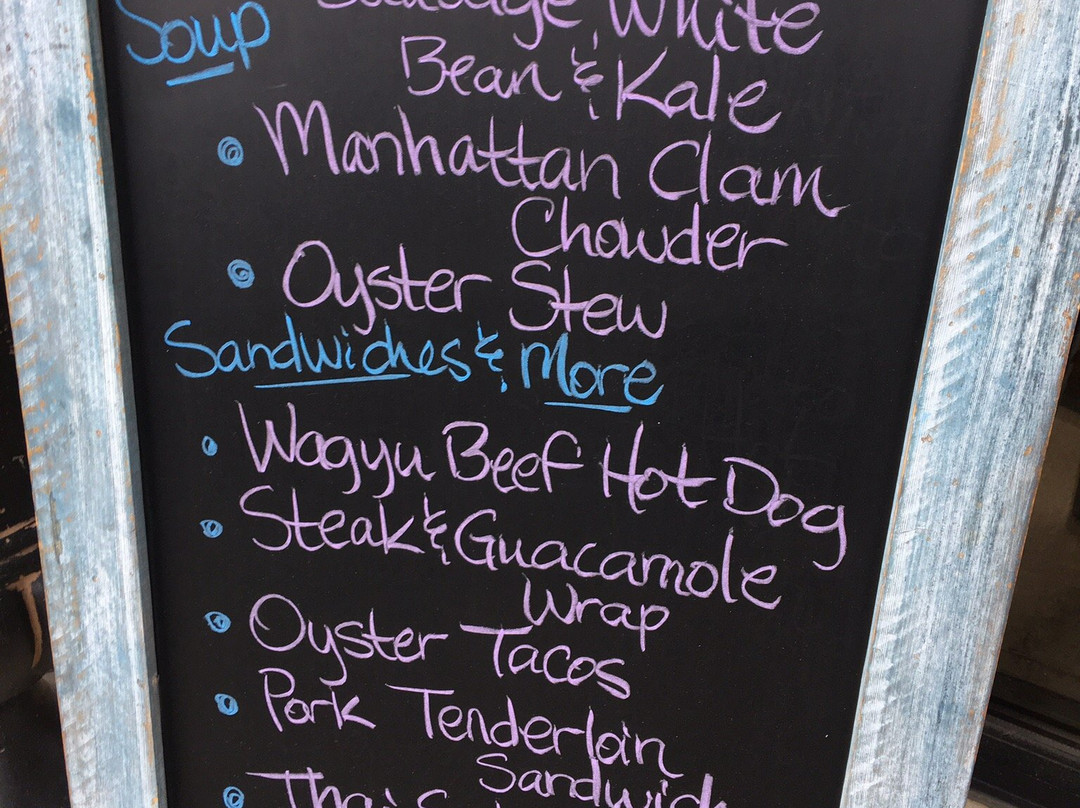 Soup
Sausage White
Bean & Kale
• Manhattan Clam
Chowder
• Oyster Stew
Sandwiches & More
• Wagyu Beef Hot Dog
• Steak & Guacamole
Wrap
• Oyster Tacos
• Pork Tenderloin
Sandwich
• Thai